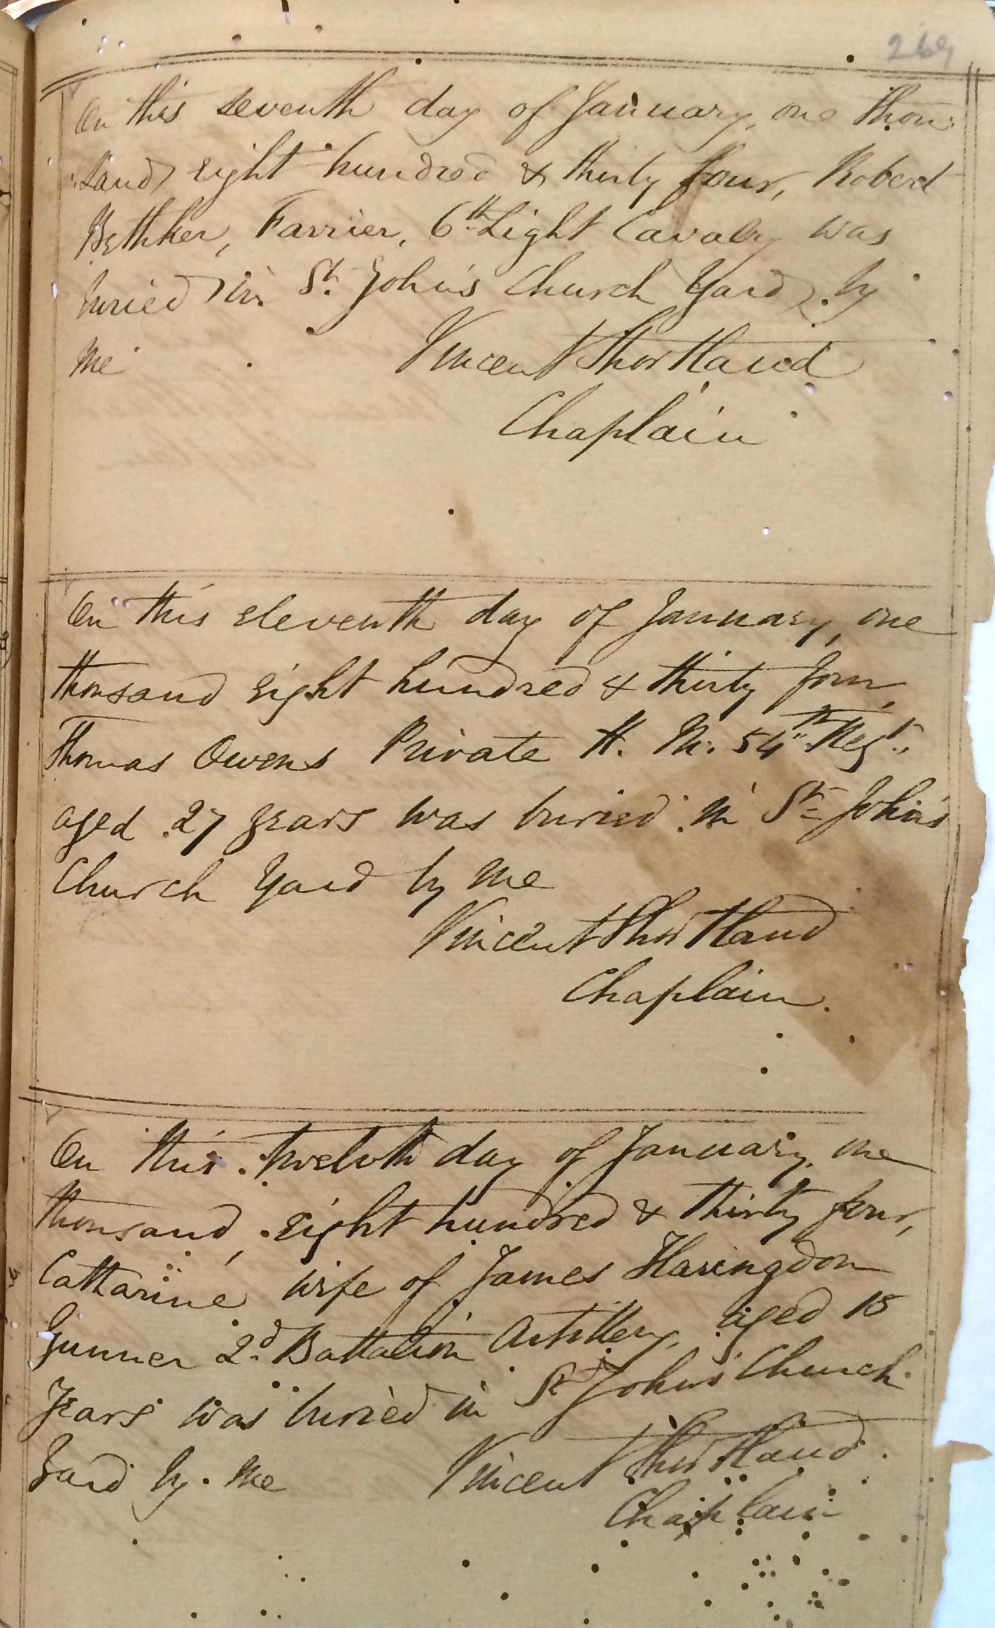 269
On this seventh day of January, one thou-
sand eight hundred & thirty four, Robert
Bethker, Farrier, 6th Light Cavalry was
buried in St. John's Church Yard, by
me
Vincent Shortland
Chaplain
On this eleventh day of January, one
thousand eight hundred & thirty four
Thomas Owens Private H. M. 54th Regt.,
aged 27 years was buried in St. John's
Church Yard by me
Vincent Shortland
Chaplain.
On this twelvth day of January, one
thousand, eight hundred & thirty four,
Catharine wife of James Haringdon
Gunner 2d. Battalion Artillery, aged 18
Years was buried in St John's Church
Yard by me Vincent Shortland.
Chaplain